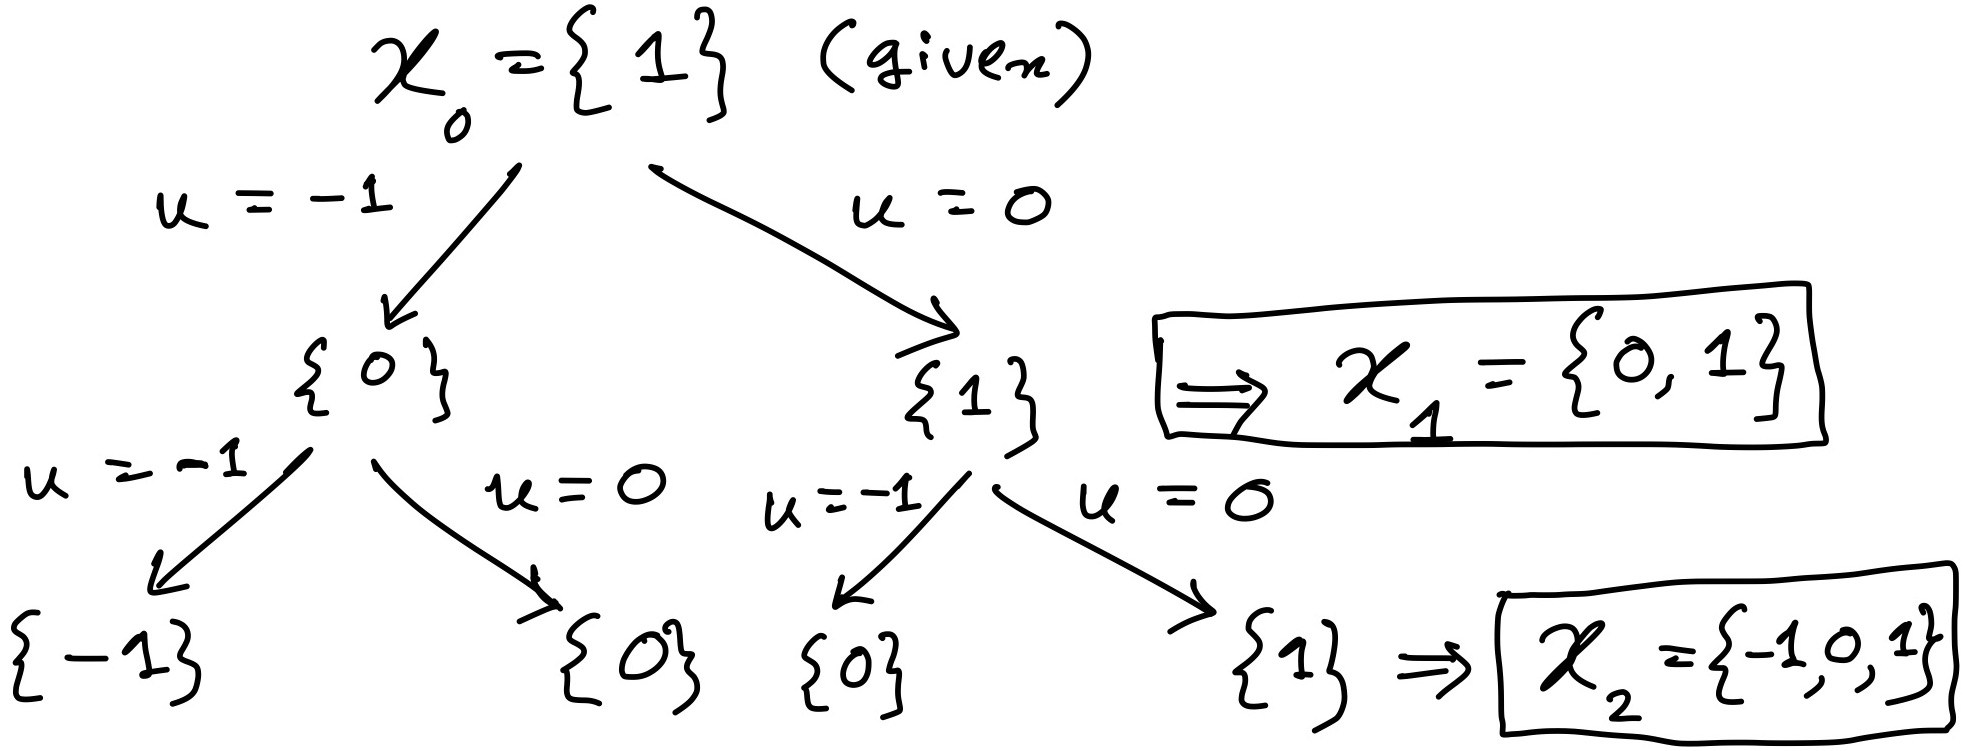 x₀ = { 1 } (given)
u = -1 u = 0
{ 0 } { 1 } ⇒ x₁ = { 0, 1 }
u = -1 u = 0 u = -1 u = 0
{ -1 } { 0 } { 0 } { 1 } ⇒ x₂ = { -1, 0, 1 }